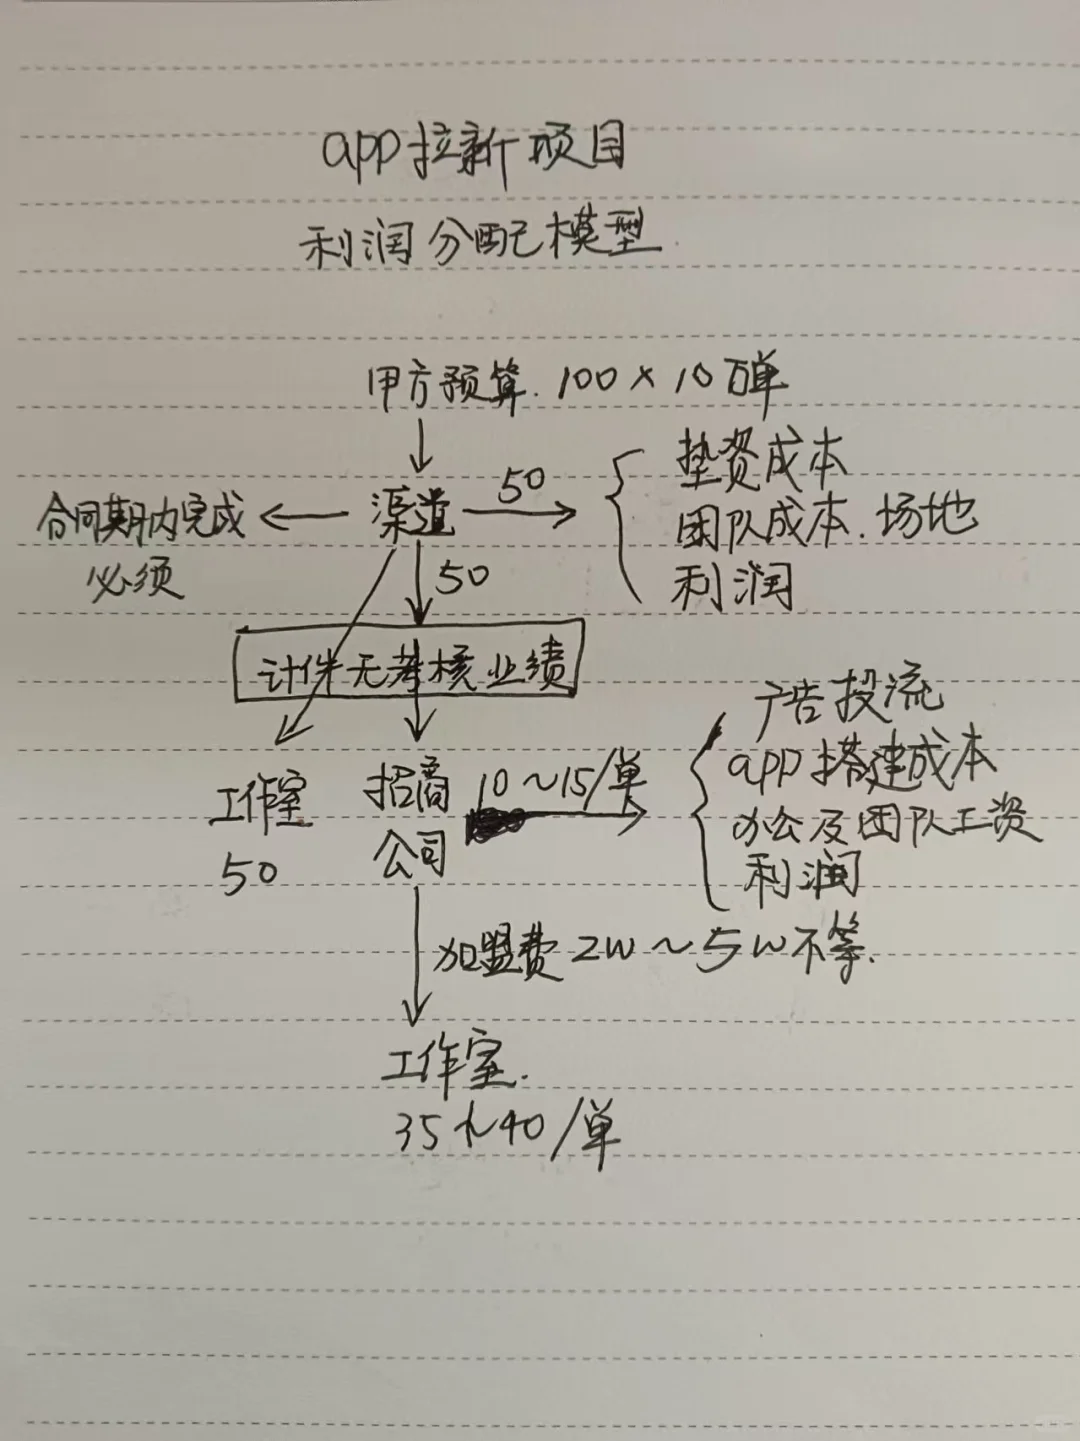 app拉新项目
利润分配模型
甲方预算. 100×10万单
渠道
50
垫资成本
团队成本.场地
利润
合同期内完成
必须
50
计件无考核业绩
工作室
50
招商
公司
10~15/单
广告投流
app搭建成本
办公及团队工资
利润
加盟费2w~5w不等.
工作室.
35~40/单